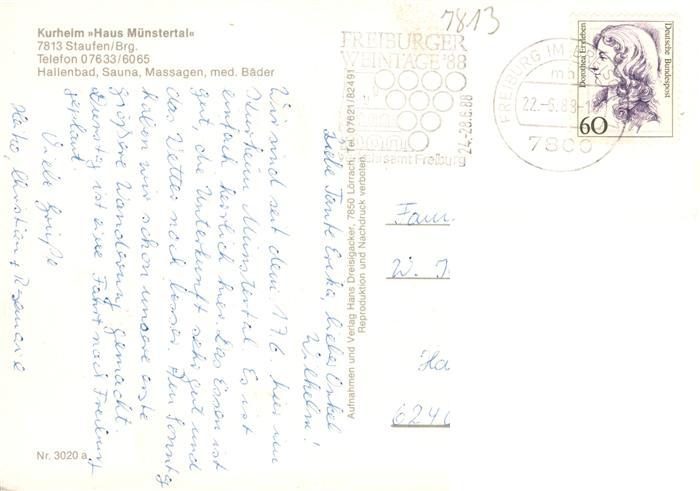 Kurheim »Haus Münstertal«
7813 Staufen/Brg.
Telefon 07633/6065
Hallenbad, Sauna, Massagen, med. Bäder
7813
FREIBURGER
WEINTAGE '88
24.-28.6.88
Verkehrsamt Freiburg
FREIBURG IM
22.-6.88
7800
Dorothea Erxleben
Deutsche Bundespost
60
Liebe Tante Erika, lieber Onkel
Wilhelm!
Wir sind seit dem 17.6. hier im
Kurheim Münstertal. Es ist
einfach herrlich hier. Das Essen ist
gut, die Unterkunft sehr gut und
das Wetter noch besser. Am Sonntag
haben wir schon unsere erste
größere Wanderung gemacht.
Dienstag ist eine Fahrt nach Freiburg
geplant.
Viele Grüße
Christian + Rosemarie
Aufnahmen und Verlag Hans Dreisigacker, 7850 Lörrach, Tel. 07621/82491
Reproduktion und Nachdruck verboten.
Fam.
W.
Ha
6240
Nr. 3020 a